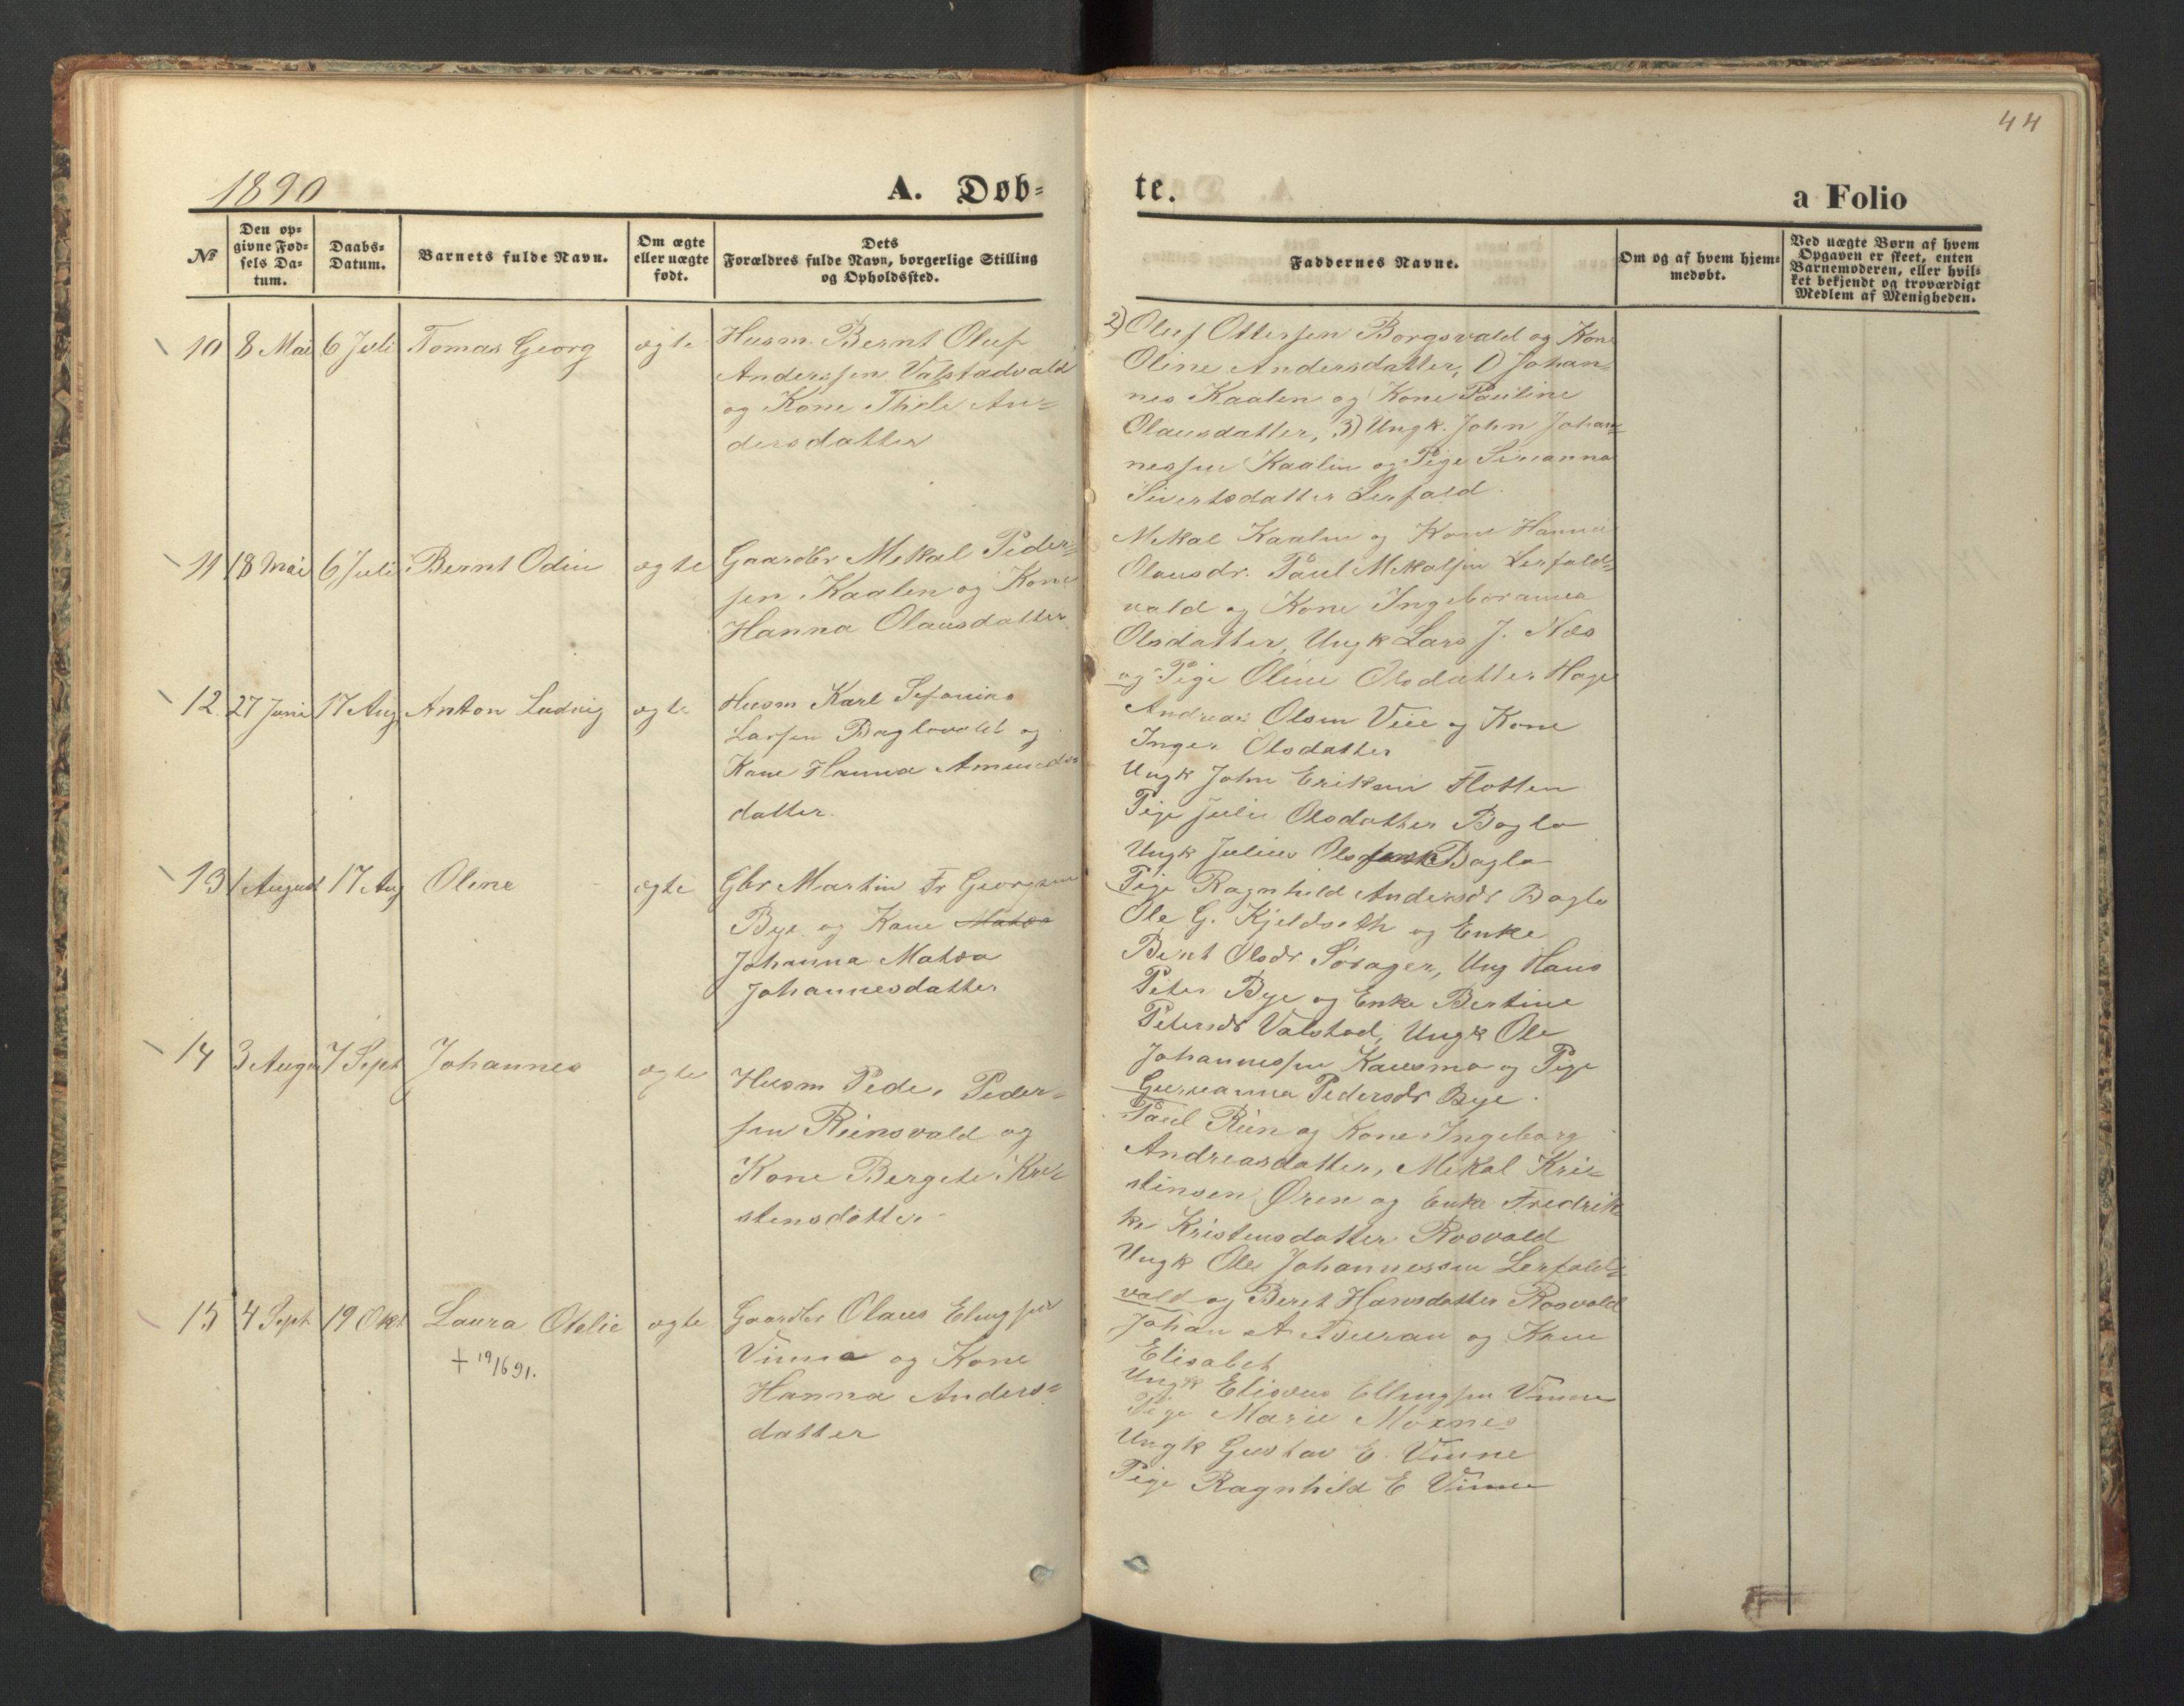 44
1890
A. Døb-
te.
a Folio
No
Den op-
givne Fød-
sels Da-
tum.
Daabs-
Datum.
Barnets fulde Navn.
Om ægte
eller uægte
født.
Dets
Forældres fulde Navn, borgerlige Stilling
og Opholdssted.
Faddernes Navne.
Om og af hvem hjem-
medøbt.
Ved uægte Børn af hvem
Opgaven er skeet, enten
Barnemoderen, eller hvil-
ket bekjendt og troværdigt
Medlem af Menigheden.
10 8 Mai 6 Juli Tomas Georg ægte Husm. Bernt Oluf
Anderssen Valstadvald
og Kone An-
dersdatter
2) Oluf Ottersen Borgsvald og Kone
Oline Andersdatter, 1) Johan-
nes Kaalen og Kone Pauline
Olausdatter, 3) Ungk. John Johan-
nessen Kaalen og Pige
Sivertsdatter Lerfald.
11 18 Mai 6 Juli Bernt Odin ægte Gaardbr Mekal Peder-
sen Kaalen og Kone
Hanna Olausdatter
Mekal Kaalen og Kone Hanna
Olausdr. Paul Mekalsen Lerfald-
vald og Kone Ingeboranna
Olsdatter, Ungk Lars J. Næs
og Pige Oline Olsdatter Hage
12. 27 Juni 17 Aug Anton Ludvig ægte Husm Karl Sefanias
Larsen Baglovald og
Kone Hanna Amunds-
datter.
Andreas Olsen Veie og Kone
Inger Olsdatter
Ungk John Eriksen Flotten
Pige Julie Olsdatter Baglo
Ungk Julius Olsen Baglo
Pige Ragnhild Andersdr Baglo
13 1 August 17 Aug Oline ægte Gbr Martin Fr Georgsen
Bye og Kone Matea
Johanna Matea
Johannesdatter
Ole G. Kjeldseth og Enke
Berit Olsdr. Sørager, Ung Hans
Peter Bye og Enke Bertine
Petersdr Valstad, Ungk Ole
Johannessen Kausmo og Pige
Gurianna Pedersdr Bye.
14 3 Augu 7 Sept Johannes ægte Husm Peder Peder-
sen Reinsvald og
Kone Bergete Kri-
stensdatter
Paul Rein og Kone Ingeborg
Andreasdatter, Mekal Kri-
stensen Øren og Enke Fredrik-
ke Kristensdatter Rosvald
Ungk Ole Johannessen Lerfald-
vald og Beret Hansdatter Rosvald
15 4 Sept 19 Okt Laura Otelie ægte Gaardbr Olaus Elingsen
Vinna og Kone
Hanna Anders-
datter
+ 19/6 91.
Johan A og Kone
Elisabet
Ungk Eliseus Ellingsen Vinne
Pige Marie Moxnes
Ungk Gustav E. Vinne
Pige Ragnhild E Vinne